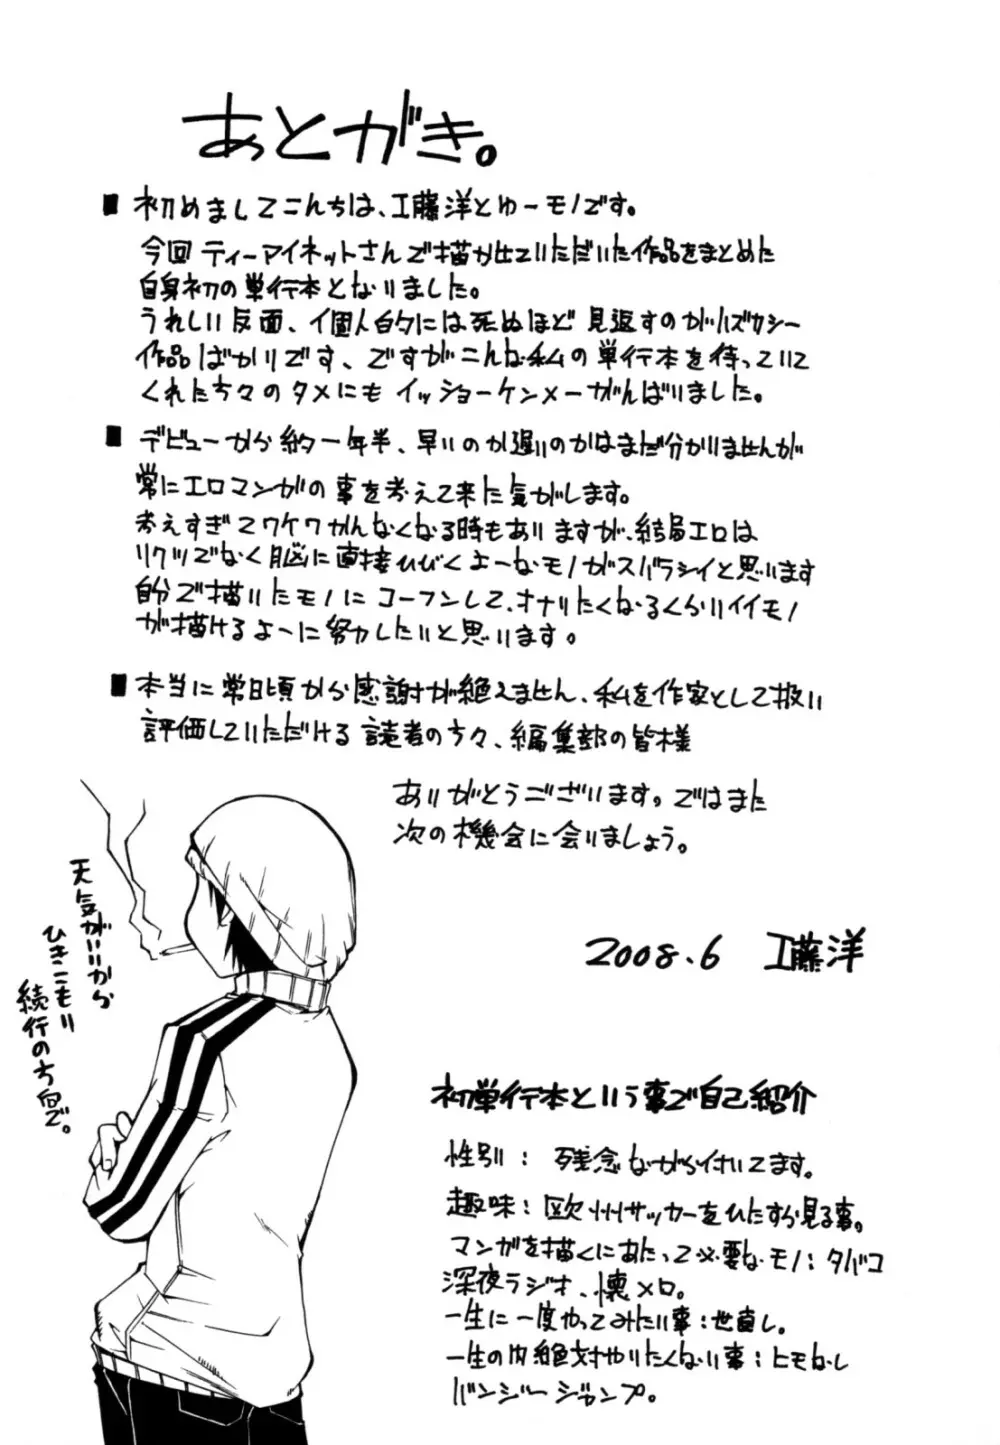 あとがき。
■ 初めましてこんちは、工藤洋とゆーモノです。
今回ティーアイネットさんで描かせていただいた作品をまとめた
自身初の単行本となりました。
うれしい反面、個人的には死ぬほど見返すのがハズカシー
作品ばかりです、ですがこんな私の単行本を待っていて
くれた方々のタメにもイッショーケンメーがんばりました。
■ デビューから約一年半、早いのか遅いのかはまだ分かりませんが
常にエロマンガの事を考えて来た気がします。
考えすぎてワケワカんなくなる時もありますが、結局エロは
リクツでなく脳に直接ひびくよーなモノがスバラシイと思います
自分で描いたモノにコーフンして、オナりたくなるくらいイイモノ
が描けるよーに努力したいと思います。
■ 本当に常日頃から感謝が絶えません、私を作家として扱い
評価していただける読者の方々、編集部の皆様
ありがとうございます。ではまた
次の機会に会いましょう。
天気がいいから
ひきこもり
続行の方向で。
2008.6 工藤洋
初単行本という事で自己紹介
性別：残念ながら付いてます。
趣味：欧州サッカーをひたすら見る事。
マンガを描くにあたって必要なモノ：タバコ
深夜ラジオ、懐メロ。
一生に一度やってみたい事：世直し。
一生の内絶対やりたくない事：ヒモなし
バンジージャンプ。